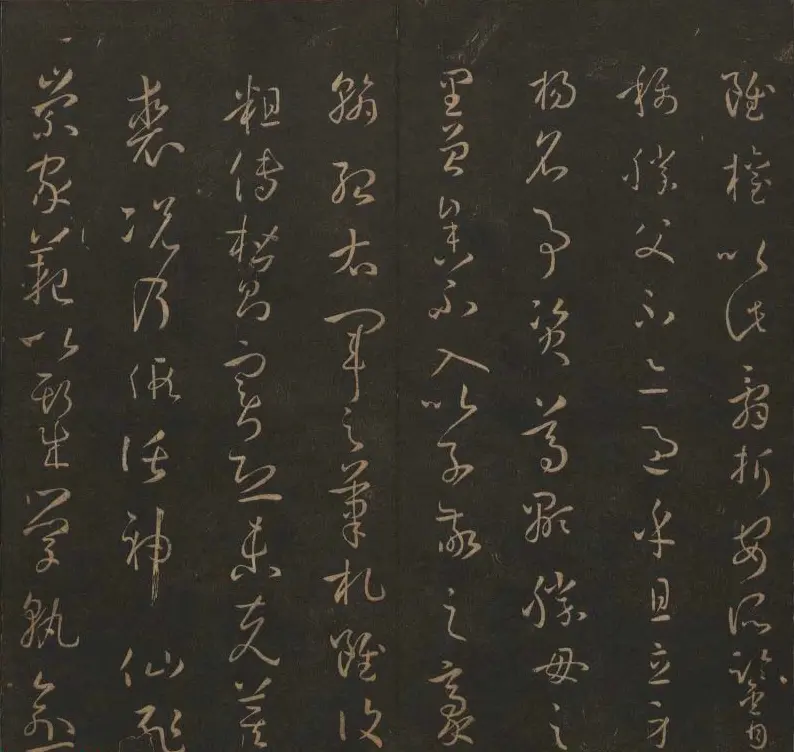 雖權以此辭折安所鑒自
稱勝父不亦過乎且立身
揚名事資尊顯勝母之
里曾參不入以子敬之豪
翰紹右軍之筆札雖復
粗傳楷則實恐未克箕
裘況乃假託神仙恥
崇家範以斯成學孰愈